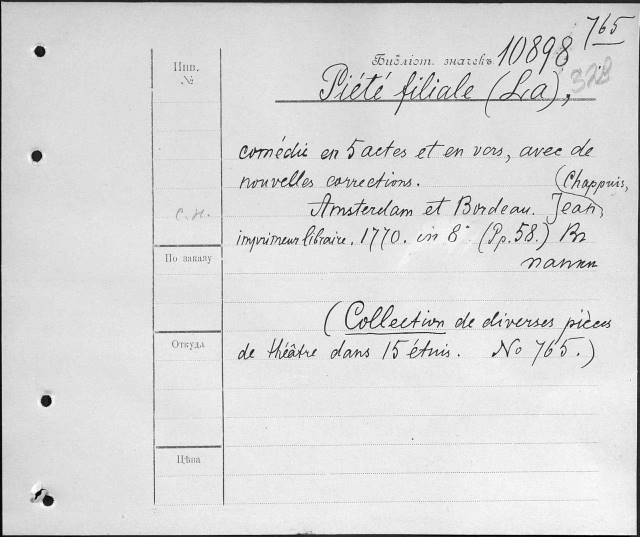 765
Библiот. значекъ 10898
328
Инв.
№
Piété filiale (La),
comédie en 5 actes et en vers, avec de
nouvelles corrections. (Chappuis,
Amsterdam et Bordeau. Jean,
imprimeur libraire. 1770. in 8° (Pp. 58.) Въ
папкѣ
С. н.
По заказу
(Collection de diverses pièces
Откуда
de théâtre dans 15 étuis. No 765.)
Цѣна